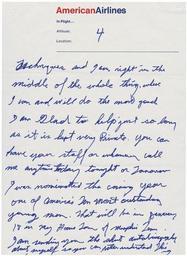 AmericanAirlines
In Flight...
Altitude;
Location;
4
Techniques and I am right in the
middle of the whole thing, where
I am and will do the most good
I am Glad to help just so long
as it is kept very Private. You can
have your staff or whomever call
me anytime today, tonight or Tomorrow
I was nominated this coming year
one of America's Ten Most outstanding
young men. That will be in January
18 in my Home Town of Memphis Tenn.
I am sending you the short autobiography
about myself so you can better understand this